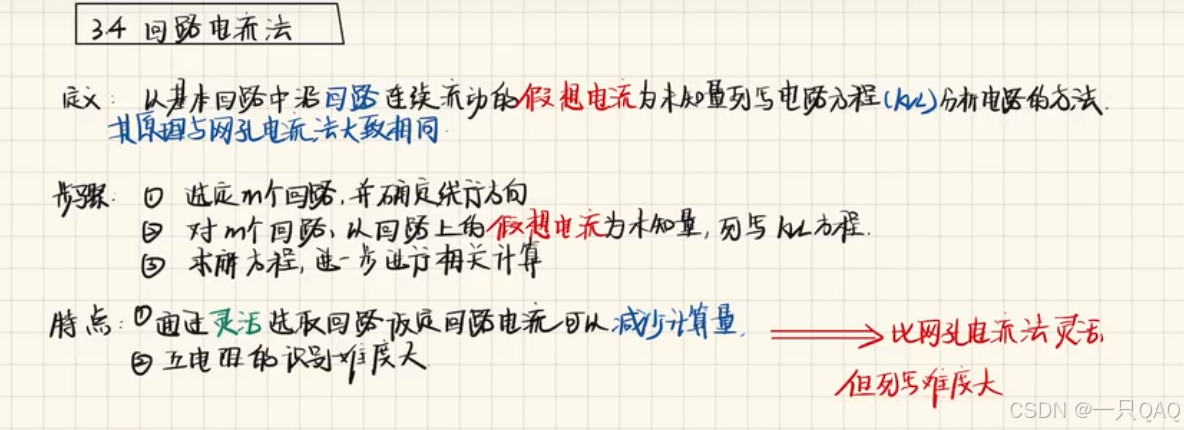 3.4 回路电流法
定义: 以基本回路中沿回路连续流动的假想电流为未知量列写电路方程(KVL)分析电路的方法.
其原理与网孔电流法大致相同.
步骤: ① 选定m个回路,并确定绕行方向
② 对m个回路,以回路上的假想电流为未知量,列写KVL方程.
③ 求解方程,进一步进行相关计算
特点: ①通过灵活选取回路设定回路电流可以减少计算量. ⟹ 比网孔电流法灵活,
②互电阻的识别难度大.
但列写难度大
CSDN @一只QAQ